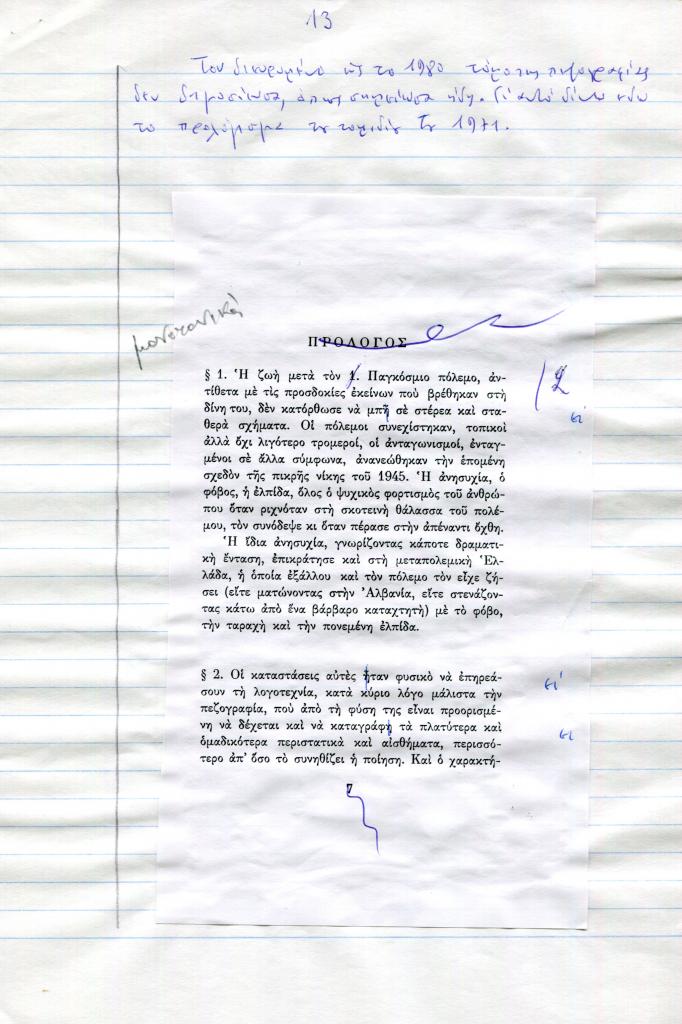 13
Τον διευρυμένο ως το 1980 τόμο της πεζογραφίας
δεν δημοσίευσα, όπως σημείωσα ήδη. Γι' αυτό δίνω εδώ
το προλόγισμα του τομιδίου του 1971.
μονοτονικό
ΠΡΟΛΟΓΟΣ
§ 1. Ἡ ζωὴ μετὰ τὸν 1. Παγκόσμιο πόλεμο, ἀν-
τίθετα μὲ τὶς προσδοκίες ἐκείνων ποὺ βρέθηκαν στὴ
δίνη του, δὲν κατόρθωσε νὰ μπῆ σὲ στέρεα καὶ στα-
θερὰ σχήματα. Οἱ πόλεμοι συνεχίστηκαν, τοπικοὶ
ἀλλὰ ὄχι λιγότερο τρομεροί, οἱ ἀνταγωνισμοί, ἐνταγ-
μένοι σὲ ἄλλα σύμφωνα, ἀνανεώθηκαν τὴν ἑπομένη
σχεδὸν τῆς πικρῆς νίκης τοῦ 1945. Ἡ ἀνησυχία, ὁ
φόβος, ἡ ἐλπίδα, ὅλος ὁ ψυχικὸς φορτισμὸς τοῦ ἀνθρώ-
που ὅταν ριχνόταν στὴ σκοτεινὴ θάλασσα τοῦ πολέ-
μου, τὸν συνόδεψε κι ὅταν πέρασε στὴν ἀπέναντι ὄχθη.
Ἡ ἴδια ἀνησυχία, γνωρίζοντας κάποτε δραματι-
κὴ ἔνταση, ἐπικράτησε καὶ στὴ μεταπολεμικὴ Ἑλ-
λάδα, ἡ ὁποία ἐξάλλου καὶ τὸν πόλεμο τὸν εἶχε ζή-
σει (εἴτε ματώνοντας στὴν Ἀλβανία, εἴτε στενάζον-
τας κάτω ἀπὸ ἕνα βάρβαρο καταχτητὴ) μὲ τὸ φόβο,
τὴν ταραχὴ καὶ τὴν πονεμένη ἐλπίδα.
§ 2. Οἱ καταστάσεις αὐτὲς ἦταν φυσικὸ νὰ ἐπηρεά-
σουν τὴ λογοτεχνία, κατὰ κύριο λόγο μάλιστα τὴν
πεζογραφία, ποὺ ἀπὸ τὴ φύση της εἶναι προορισμέ-
νη νὰ δέχεται καὶ νὰ καταγράφη τὰ πλατύτερα καὶ
ὁμαδικότερα περιστατικὰ καὶ αἰσθήματα, περισσό-
τερο ἀπ' ὅσο τὸ συνηθίζει ἡ ποίηση. Καὶ ὁ χαρακτή-
2
εί
εί
εί